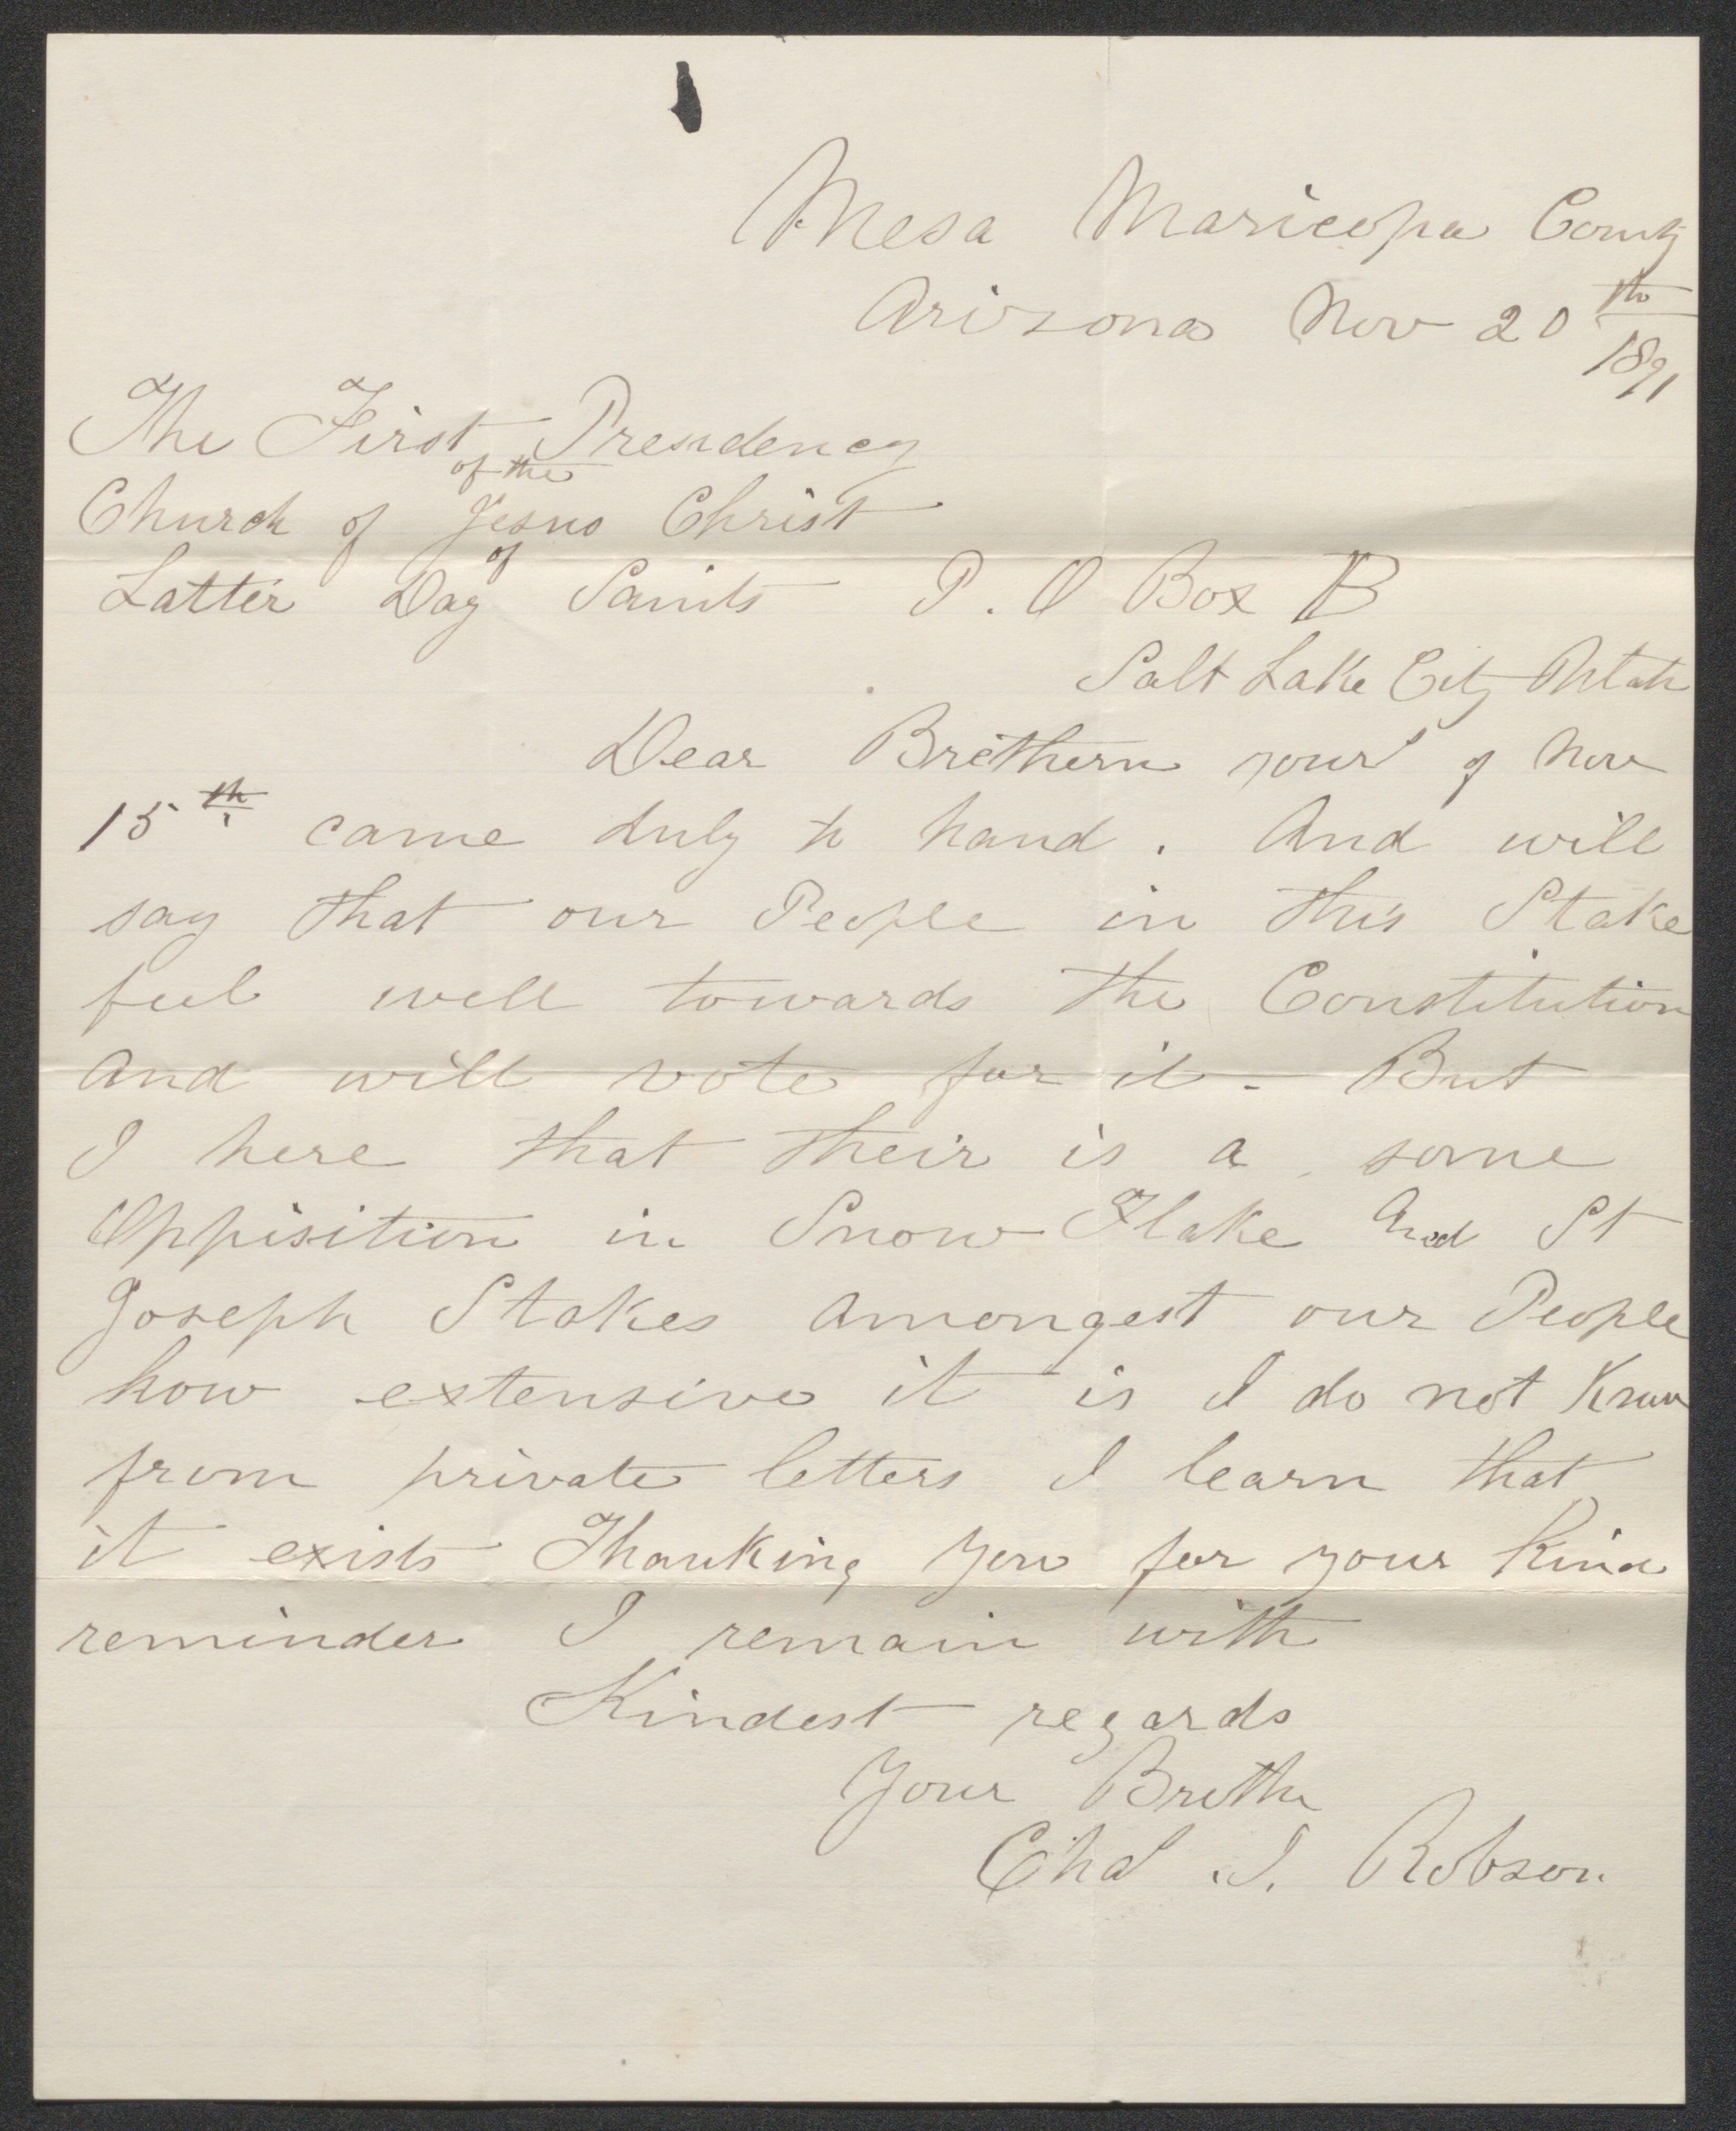 Mesa Maricopa County
Arizona Nov 20th
1891
The First Presidency
of the
Church of Jesus Christ
of
Latter Day Saints P. O Box B
Salt Lake City Utah
Dear Brethern yours of Nov
15th came duly to hand. And will
say that our People in this Stake
feel well towards the Constitution
and will vote for it - But
I here that their is a some
Oppisition in Snow Flake And St
Joseph Stakes amongest our People
how extensive it is I do not Know
from private letters I learn that
it exists Thanking you for your Kind
reminder I remain with
Kindest regards
Your Brother
Chas. I. Robson.